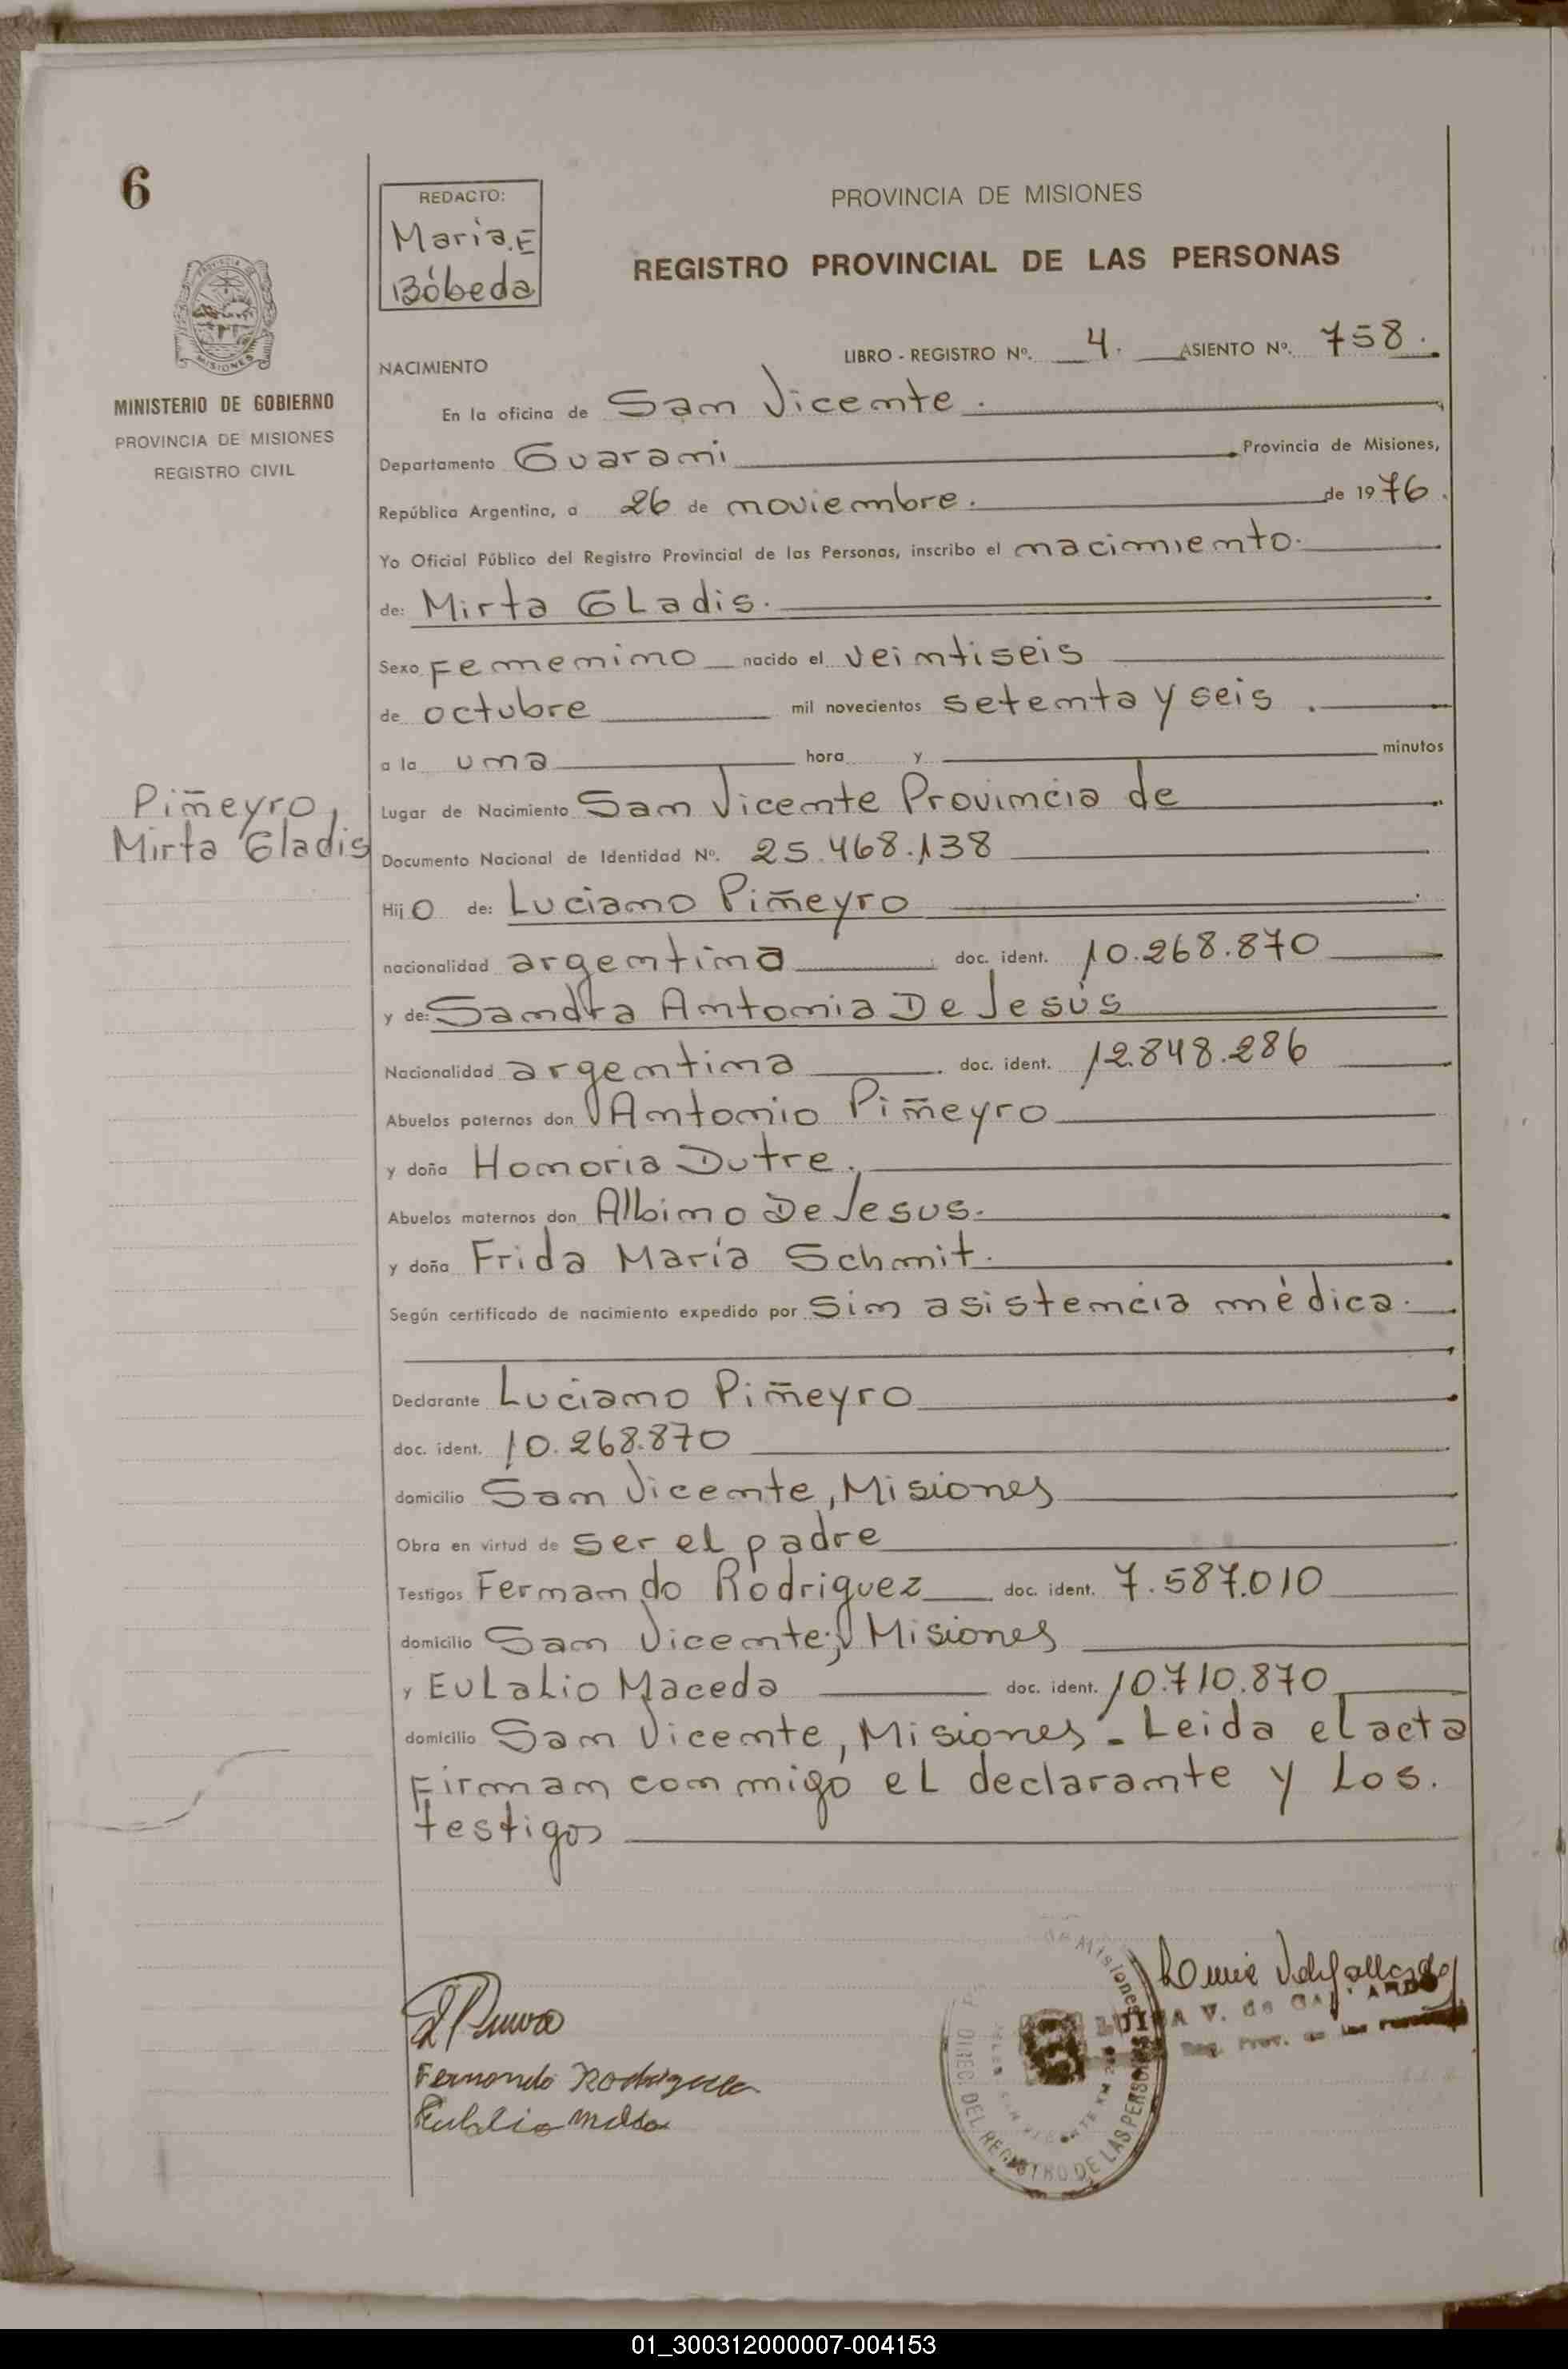 6
REDACTO:
Maria.E
Bóbeda
PROVINCIA DE MISIONES
REGISTRO PROVINCIAL DE LAS PERSONAS
MINISTERIO DE GOBIERNO
PROVINCIA DE MISIONES
REGISTRO CIVIL
NACIMIENTO
LIBRO - REGISTRO Nº. 4. ASIENTO Nº. 758.
En la oficina de San Vicente.
Departamento Guarani Provincia de Misiones,
República Argentina, a 26 de noviembre. de 1976.
Yo Oficial Público del Registro Provincial de las Personas, inscribo el nacimiento.
de: Mirta GLadis.
Sexo Femenino nacido el veintiseis
de octubre mil novecientos setenta y seis.
a la una hora y minutos
Piñeyro,
Mirta Gladis
Lugar de Nacimiento San Vicente Provincia de
Documento Nacional de Identidad Nº. 25.468.138
Hijo de: Luciano Piñeyro
nacionalidad argentina doc. ident. 10.268.870
y de: Sandra Antonia De Jesús
Nacionalidad argentina doc. ident. 12.848.286
Abuelos paternos don Antonio Piñeyro
y doña Honoria Dutre.
Abuelos maternos don Albino De Jesus.
y doña Frida María Schmit.
Según certificado de nacimiento expedido por Sin asistencia médica.
Declarante Luciano Piñeyro
doc. ident. 10.268.870
domicilio San Vicente, Misiones
Obra en virtud de ser el padre
Testigos Fernando Rodriguez doc. ident. 7.587.010
domicilio San Vicente, Misiones
y EuLaLio Maceda doc. ident. 10.710.870
domicilio San Vicente, Misiones. Leida el acta
Firman conmigo eL declarante y Los.
testigos
Fernando Rodriguez
V. de
Reg. Prov. de las
DIREC. DEL REGISTRO DE LAS PERSONAS
de Misiones
01_300312000007-004153